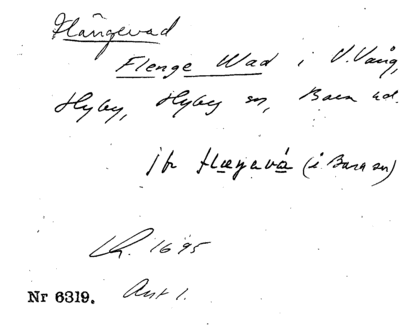 Flängevad
Flenge Wad i V. Vång,
Hyby, Hyby sn, Bara hd.
jfr flæŋavá (i Bara sn)
1695
Nr 6319. Avt 1.